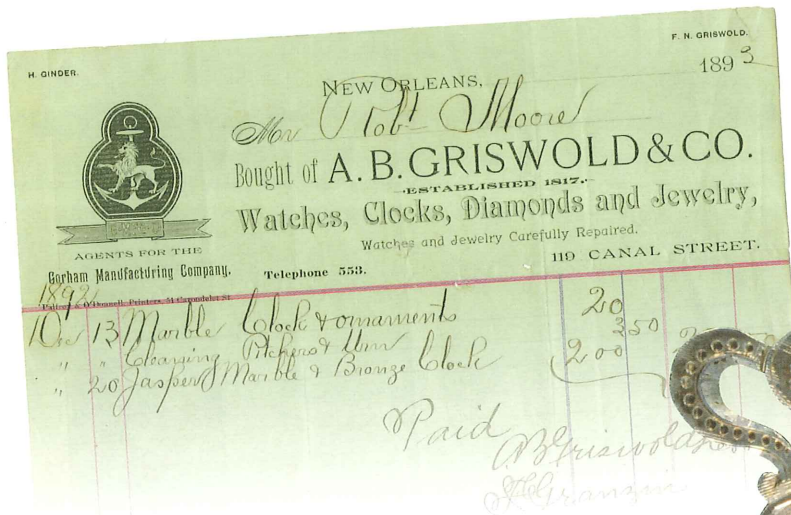 H. GINDER.
F. N. GRISWOLD.
NEW ORLEANS, 1893
Mr Robt Moore
Bought of A. B. GRISWOLD & CO.
ESTABLISHED 1817.
Watches, Clocks, Diamonds and Jewelry,
Watches and Jewelry Carefully Repaired.
119 CANAL STREET.
AGENTS FOR THE
Gorham Manufacturing Company.
Telephone 553.
1892
Dec 13 Marble Clock & ornaments 20
" " Cleaning Pitchers & Urn 2 50
" 20 Jasper Marble & Bronze Clock 200
Paid
A B Griswold